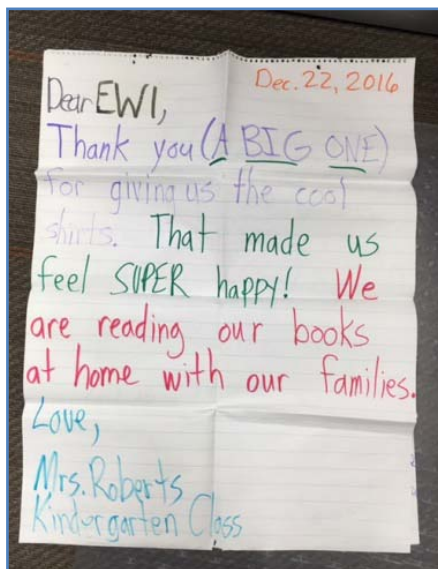 Dec. 22, 2016
Dear EWI,
Thank you (A BIG ONE)
for giving us the cool
shirts. That made us
feel SUPER happy! We
are reading our books
at home with our families.
Love,
Mrs. Roberts
Kindergarten Class